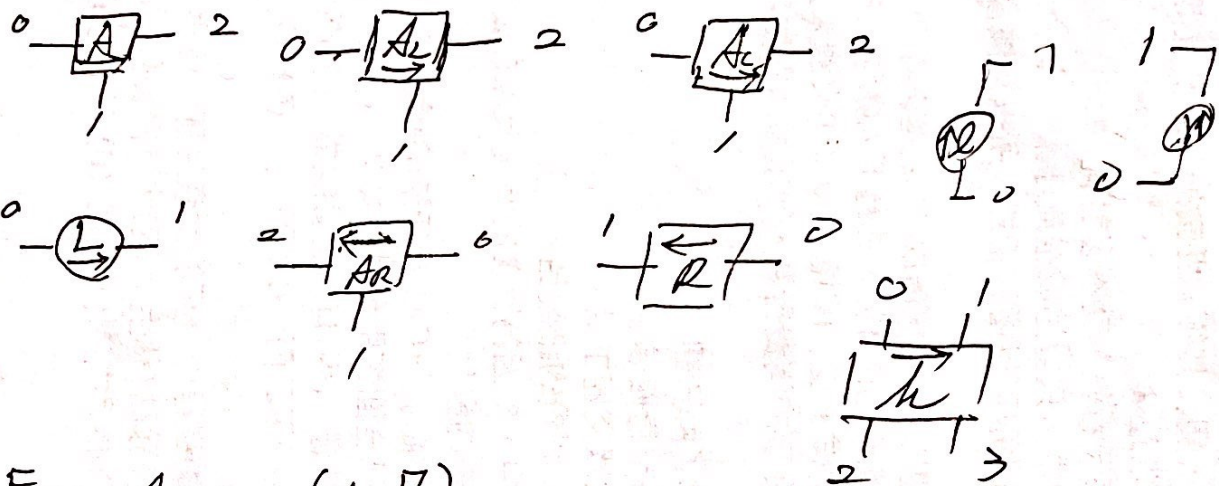 0 A 2 0 A_L 2 0 A_C 2
1 1 1
1 1
0 0
0 L 1 2 A_R 0 1 R 0
1
0 1
h
2 3